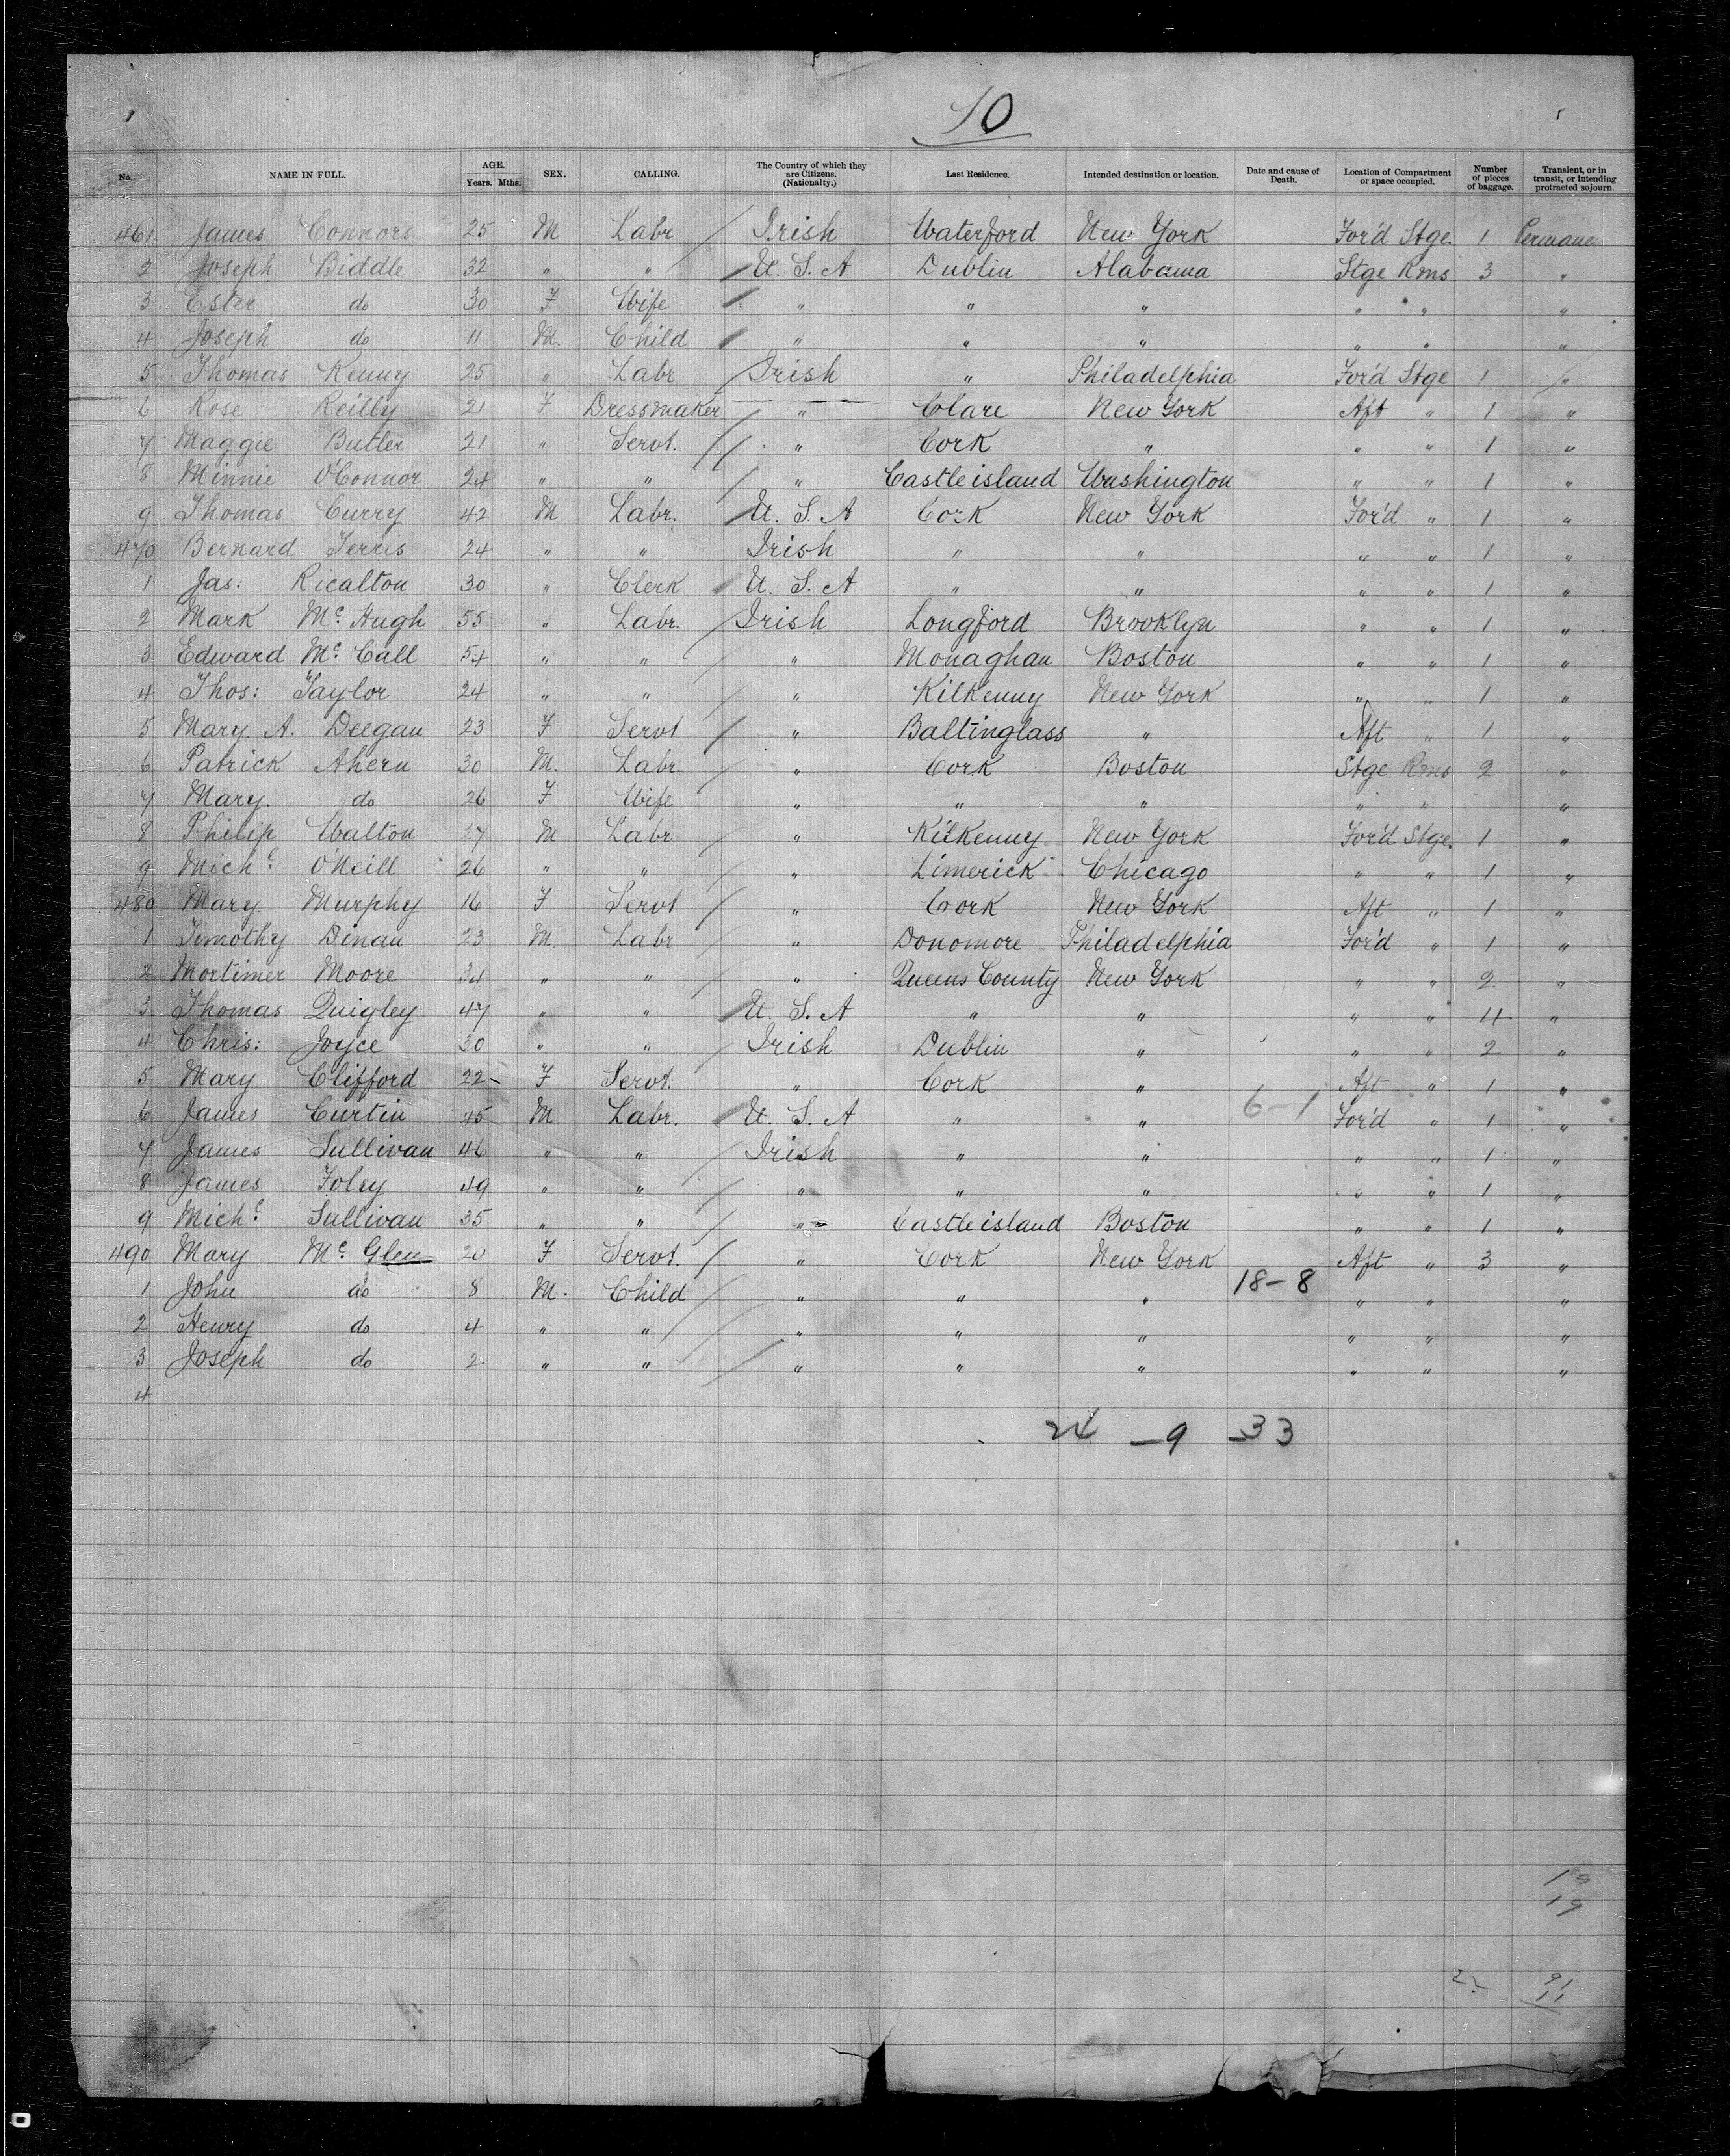 10
No. NAME IN FULL. AGE. Years. Mths. SEX. CALLING. The Country of which they are Citizens. (Nationalty.) Last Residence. Intended destination or location. Date and cause of Death. Location of Compartment or space occupied. Number of pieces of baggage. Transient, or in transit, or intending protracted sojourn.
461 James Connors 25 M Labr Irish Waterford New York For'd Stge. 1 Permane
2 Joseph Biddle 32 " " U. S. A Dublin Alabama Stge Rms 3 "
3 Ester do 30 F Wife " " " " " "
4 Joseph do 11 M. Child " " " " " "
5 Thomas Kenny 25 " Labr Irish " Philadelphia For'd Stge 1 "
6 Rose Reilly 21 F Dressmaker " Clare New York Aft " 1 "
7 Maggie Butler 21 " Servt. " Cork " " " 1 "
8 Minnie O'Connor 24 " " " Castleisland Washington " " 1 "
9 Thomas Curry 42 M Labr. U. S. A Cork New York For'd " 1 "
470 Bernard Ferris 24 " " Irish " " " " 1 "
1 Jas: Ricalton 30 " Clerk U. S. A " " " " 1 "
2 Mark Mc. Hugh 55 " Labr. Irish Longford Brooklyn " " 1 "
3 Edward Mc. Call 54 " " " Monaghan Boston " " 1 "
4 Thos: Taylor 24 " " " Kilkenny New York " " 1 "
5 Mary. A. Deegan 23 F Servt " Baltinglass " Aft " 1 "
6 Patrick Ahern 30 M. Labr. " Cork Boston Stge Rms 2 "
7 Mary. do 26 F Wife " " " " " "
8 Philip Walton 27 M Labr " Kilkenny New York For'd Stge. 1 "
9 Michl. O'Neill 26 " " " Limerick Chicago " " 1 "
480 Mary Murphy 16 F Servt " Cork New York Aft " 1 "
1 Timothy Dinan 23 M. Labr " Donomore Philadelphia For'd " 1 "
2 Mortimer Moore 34 " " " Queens County New York " " 2 "
3 Thomas Quigley 47 " " U. S. A " " " " 4 "
4 Chris: Joyce 30 " " Irish Dublin " " " 2 "
5 Mary Clifford 22 F Servt. " Cork " Aft " 1 "
6 James Curtin 45 M Labr. U. S. A " " 6-1 For'd " 1 "
7 James Sullivan 46 " " Irish " " " " 1 "
8 James Foley 49 " " " " " " " 1 "
9 Michl. Sullivan 35 " " " Castleisland Boston " " 1 "
490 Mary Mc. Glen 20 F Servt. " Cork New York Aft " 3 "
1 John do 8 M. Child " " " 18-8 " " "
2 Henry do 4 " " " " " " " "
3 Joseph do 2 " " " " " " " "
4
24 - 9 - 33
19
19
22 91
11